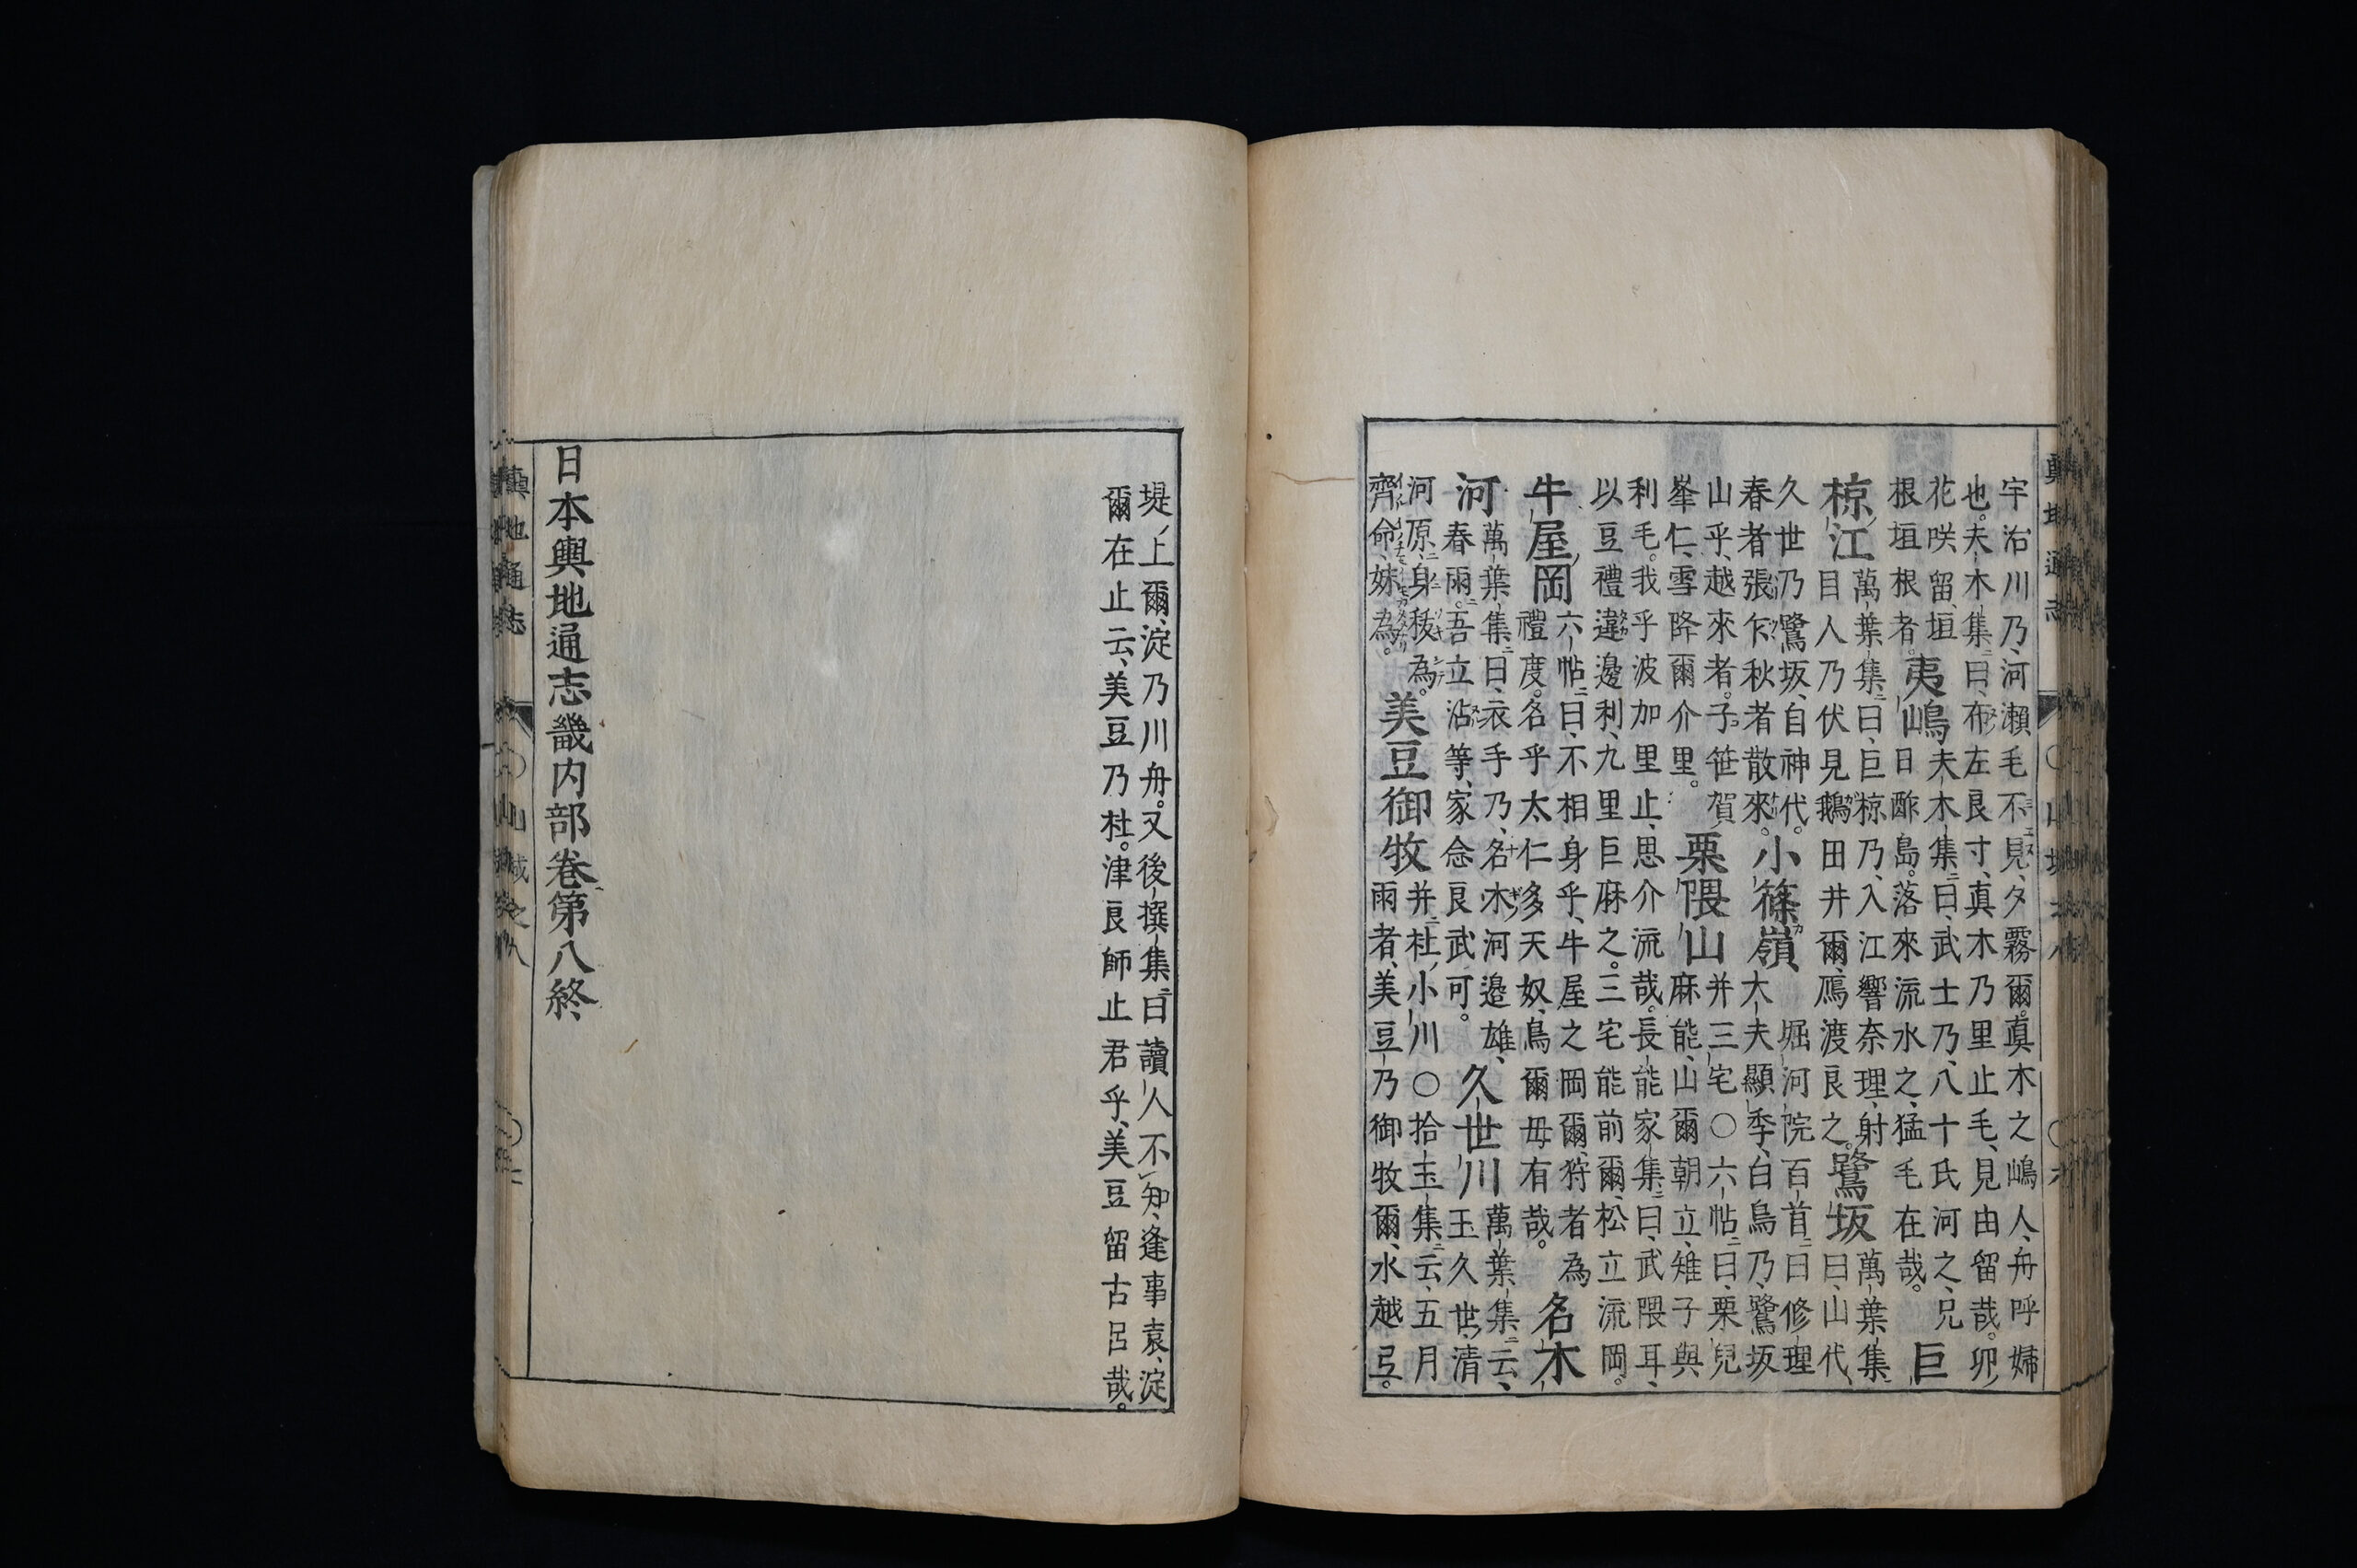 宇治川乃、河瀬毛不見、夕霧爾。真木之嶋人、舟呼婦
也。夫木集曰、布左良寸、真木乃里止毛、見由留哉。卯
花咲留、垣
根垣根者。
夷嶋
夫木集曰、武士乃、八十氏河之、兄
日酢島。落來流水之、猛毛在哉。
巨
椋江
萬葉集曰、巨椋乃、入江響奈理、射
目人乃伏見鵝田井爾、鴈渡良之。
鷺坂
萬葉集
曰、山代
久世乃鷺坂、自神代。
春者張乍、秋者散來。
小篠嶺
堀河院百首曰修理
大夫顯季、白鳥乃、鷺坂
山乎、越來者。子笹賀
峯仁、雪降爾介里。
栗隈山
并三宅○六帖曰、栗兒
麻能、山爾朝立、雉子與
利毛。我乎波加里止、思介流哉。長能家集曰、武隈耳、
以豆禮違邊利、九里巨麻之。三宅能前爾、松立流岡。
牛屋岡
六帖曰、不相身乎、牛屋之岡爾、狩者為
禮度。名乎太仁多天奴、鳥爾毋有哉。
名木
河
萬葉集曰、衣手乃、名木河邉雄、
春爾。吾立沾等、家念良武可。
久世川
萬葉集云、
玉久世、清
河原、身秡為。
齊命、妹為。
美豆御牧
并杜小川○拾玉集云、五月
雨者、美豆乃御牧爾、水越弖。
堤上爾、淀乃川舟。又後撰集曰讀人不知、逢事袁、淀
爾在止云、美豆乃杜。津良師止君乎、美豆留古呂哉。
日本輿地通志畿内部卷第八終